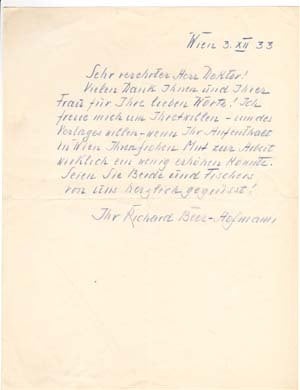 Wien 3. XII 33
Sehr verehrter Herr Doktor!
Vielen Dank Ihnen und Ihrer
Frau für Ihre lieben Worte! Ich
freue mich um Ihretwillen - um des
Verlages willen - wenn Ihr Aufenthalt
in Wien Ihnen frohen Mut zur Arbeit
wirklich ein wenig erhöhen konnte.
Seien Sie Beide und Fischers
von uns herzlich gegrüsst!
Ihr Richard Beer-Hofmann